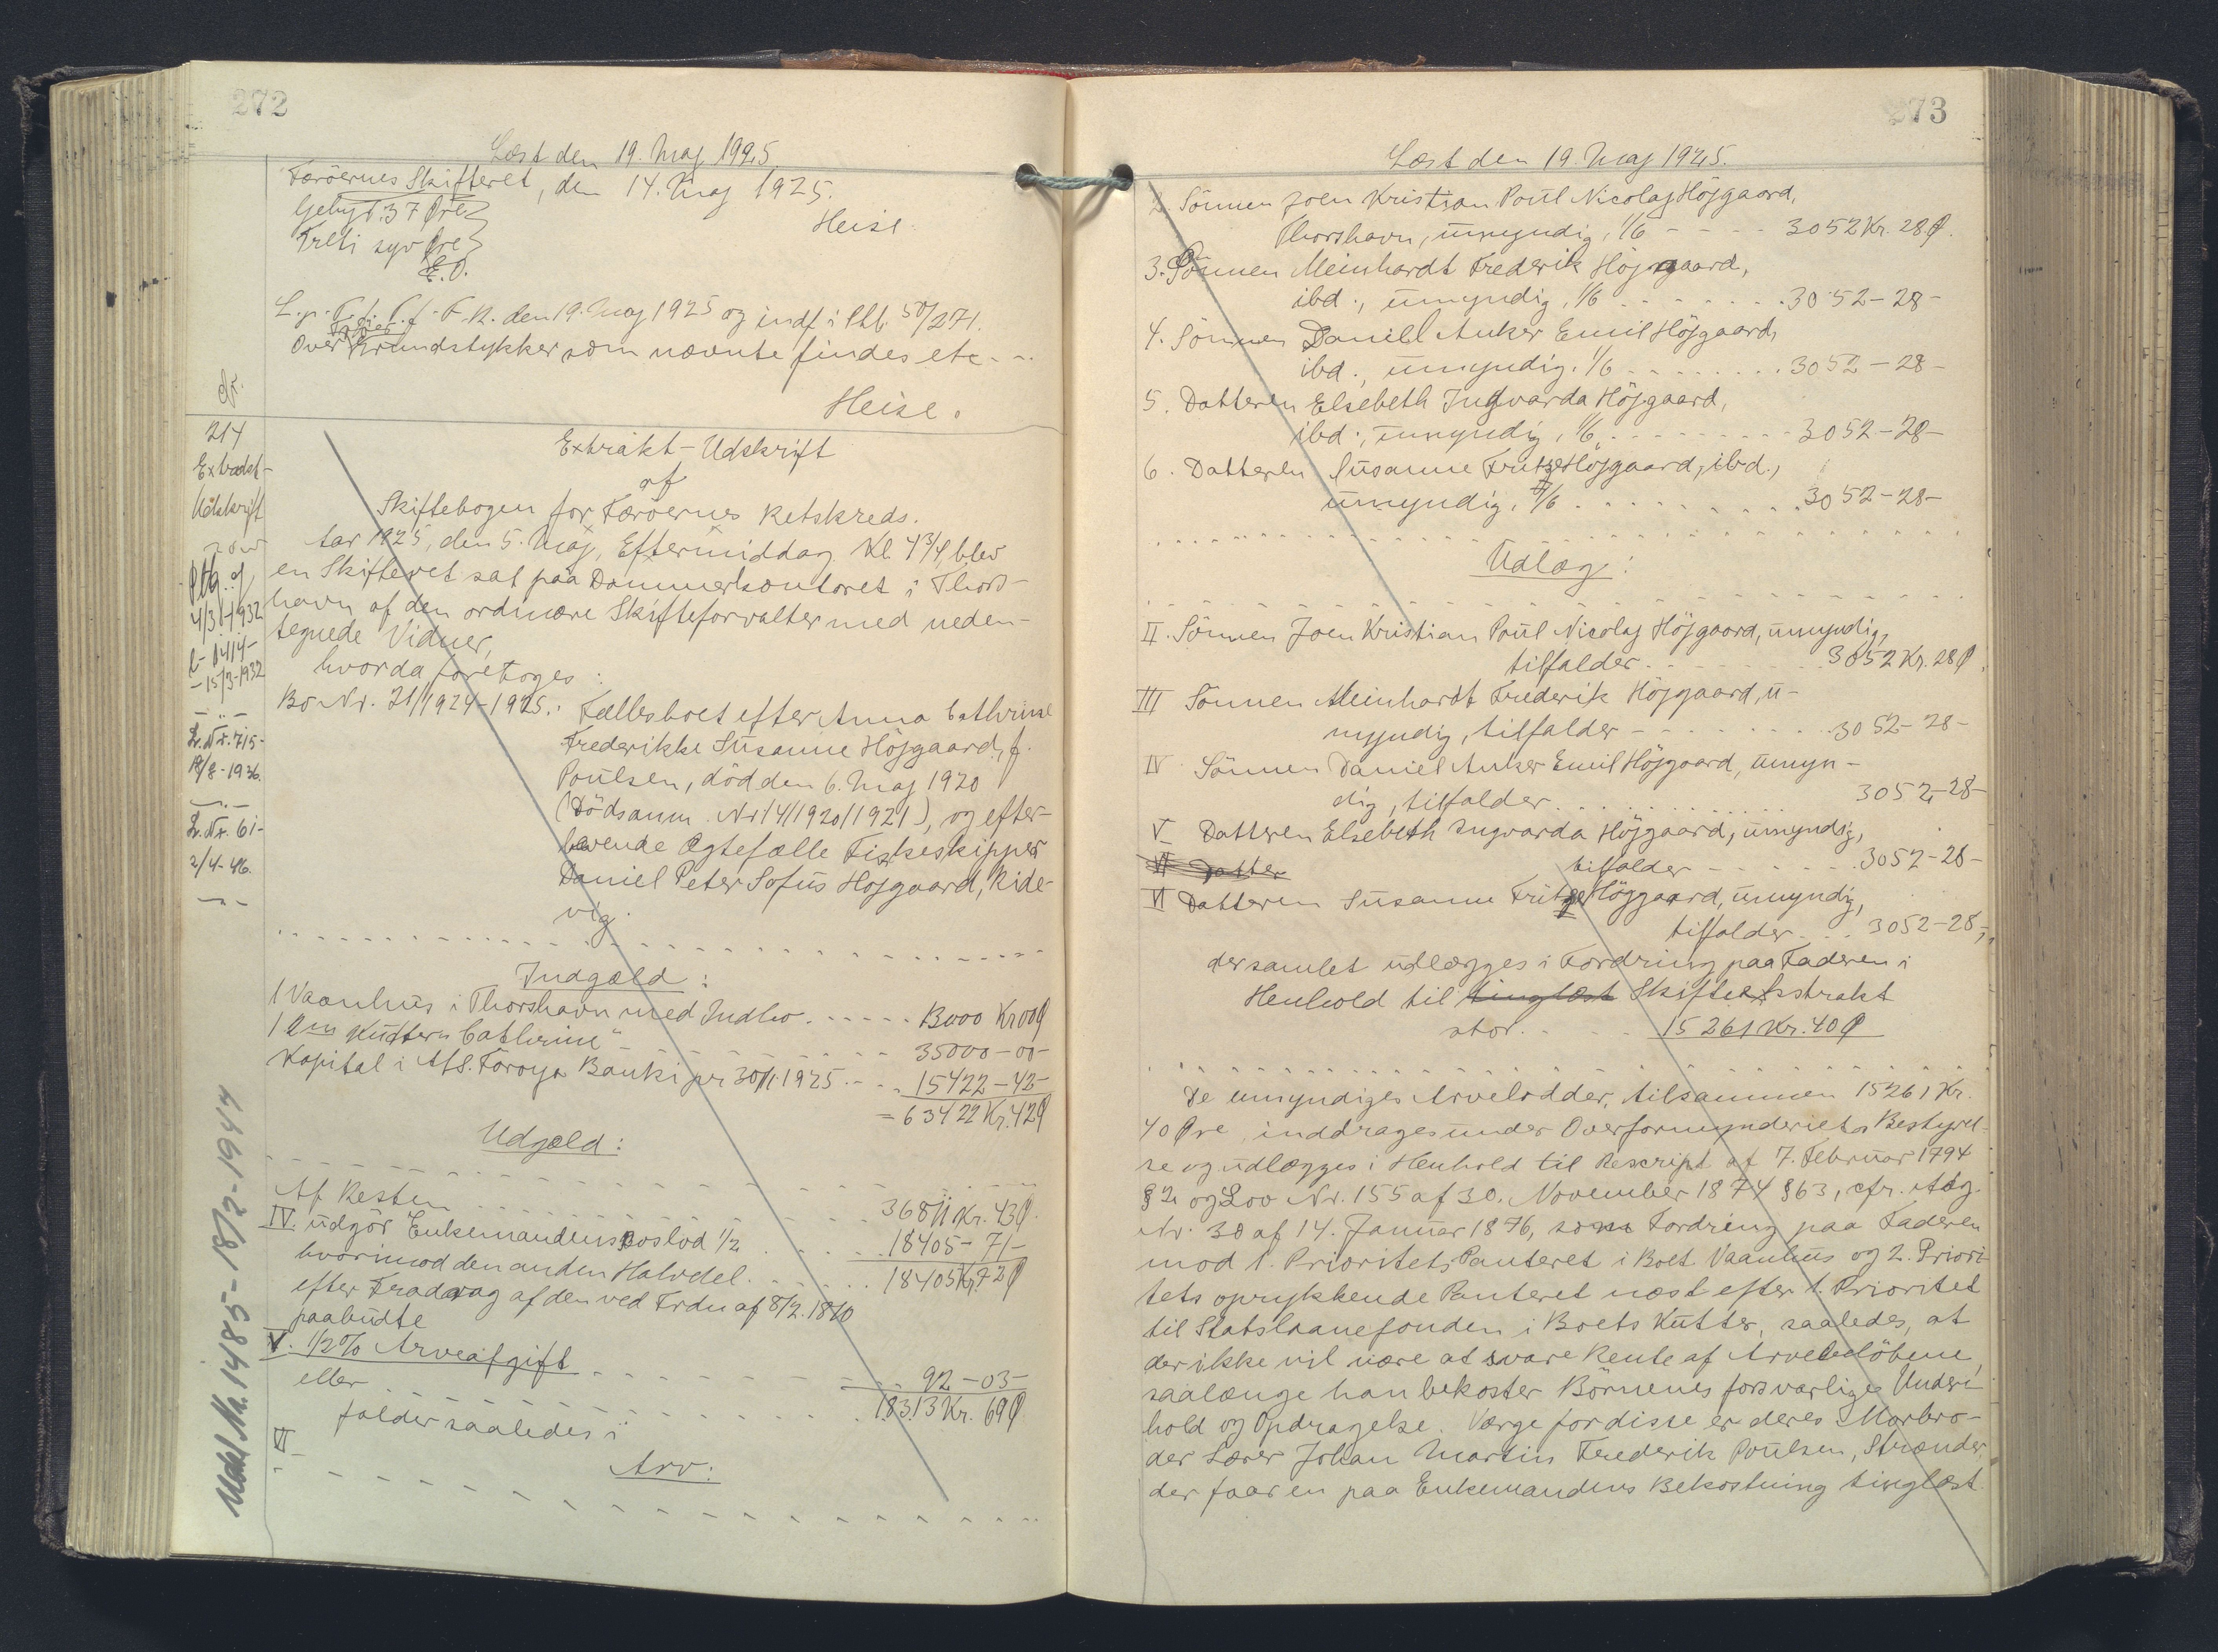 272
Læst den 19. Maj 1925.
Færöernes Skifteret, den 14. Maj 1925.
Gebyr 37 Øre
Heise.
Treti syv Øre
E.O.
L.p.T.f.T.f.F.R. den 19. Maj 1925 og indf. i Phb. 50/271.
Over Grundstykker som nævnte findes etc - -
Heise.
cfr.
214
Extrakt-
Udskrift
4/3-1932
L- 1414-
-15/3-1932
- " -
L.Nr. 715-
18/8-1936.
- " -
L.Nr. 61-
2/4-46.
- " -
Udsl. Nr. 1485-18/2-1944
Extrakt-Udskrift
af
Skiftebogen for Færöernes Retskreds.
Aar 1925, den 5. Maj, Eftermiddag Kl. 4 3/4, blev
en Skifteret sat paa Dommerkontoret i Thors-
havn af den ordinære Skifteforvalter med neden-
tegnede Vidner,
hvorda foretoges:
Bo Nr. 21/1924-1925.: Fællesboet efter Anna Cathrine
Frederikke Susanne Höjgaard, f.
Poulsen, död den 6. Maj 1920
(Dödsanm. Nr. 14/1920/1921), og efter-
levende Ægtefælle Fiskeskipper
Daniel Peter Sofus Höjgaard, Kide-
vig.
Indgæld:
1 Vaanhus i Thorshavn med Indbo. - - - - - 13000 Kr 00 Ø
1 Kuttern "Cathrine" - - - - 35000 - 00 -
Kapital i A/S. Föroya Banki pr 30/1. 1925 - - - 15422 - 42 -
= 63422 Kr. 42 Ø
Udgæld:
Af Resten - - - - 36811 Kr. 43 Ø.
IV. udgör Enkemandens Boslod 1/2 . . . . 18405 - 71 -
hvorimod den anden Halvdel. . . . . . 18405 Kr. 72 Ø
efter Fradrag af den ved Frdn af 8/2. 1810
paabudte
V. 1/2 % Arveafgift - - - - 92 - 03 -
eller - - - - 18313 Kr. 69 Ø
falder saaledes i
VI
Arv:
273
Læst den 19. Maj 1925.
2. Sönnen Joen Kristian Poul Nicolaj Höjgaard,
Thorshavn, umyndig, 1/6 - - - - 3052 Kr. 28 Ø.
3. Sönnen Meinhardt Frederik Höjgaard,
ibd., umyndig, 1/6 . . . . . . . 3052 - 28 -
4. Sönnen Daniel Anker Emil Höjgaard,
ibd., umyndig. 1/6 . . . . . . . 3052 - 28 -
5. Datteren Elsebeth Ingvarda Höjgaard,
ibd., umyndig, 1/6, . . . . . . . 3052 - 28 -
6. Datteren Susanne Frutze Höjgaard, ibd.,
umyndig, 1/6 . . . . . . . . 3052 - 28 -
Udlæg:
II. Sönnen Joen Kristian Poul Nicolaj Höjgaard, umyndig,
tilfalder . . . . . . . 3052 Kr. 28 Ø.
III Sönnen Meinhardt Frederik Höjgaard, u-
myndig, tilfalder - - - - - . 3052 - 28 -
IV. Sönnen Daniel Anker Emil Höjgaard, umyn-
dig, tilfalder . . . . . . . . 3052 - 28 -
V Datteren Elsebeth Ingvarda Höjgaard, umyndig,
tilfalder - - - - - . 3052 - 28 -
VI Datter
VI Datteren Susanne Frutze Höjgaard, umyndig,
tilfalder . . . 3052 - 28 -,
der samlet udlægges i Fordring paa Faderen i
Henhold til tinglæst Skifteekstrakt
stor. . . . . 15261 Kr. 40 Ø
De umyndiges Arvelodder, tilsammen 15261 Kr.
40 Øre, inddrages under Overformynderiets Bestyrel-
se og udlægges i Henhold til Rescript af 7. Februar 1794
§ 2 og Lov Nr. 155 af 30. November 1874 § 63, cfr. Adg.
Nr. 30 af 14. Januar 1876, som Fordring paa Faderen
mod 1. Prioritets Panteret i Boet. Vaanhus og 2. Priori-
tets oprykkende Panteret næst efter 1. Prioritet
til Statslaanefonden i Boets Kutter, saaledes, at
der ikke vil være at svare Rente af Arvebelöbene,
saalænge han bekoster Börnenes forsvarlige Under-
hold og Opdragelse. Værge for disse er deres Morbro-
der Lærer Johan Martin Frederik Poulsen, Strænder,
der faar en paa Enkemandens Bekostning tinglæst